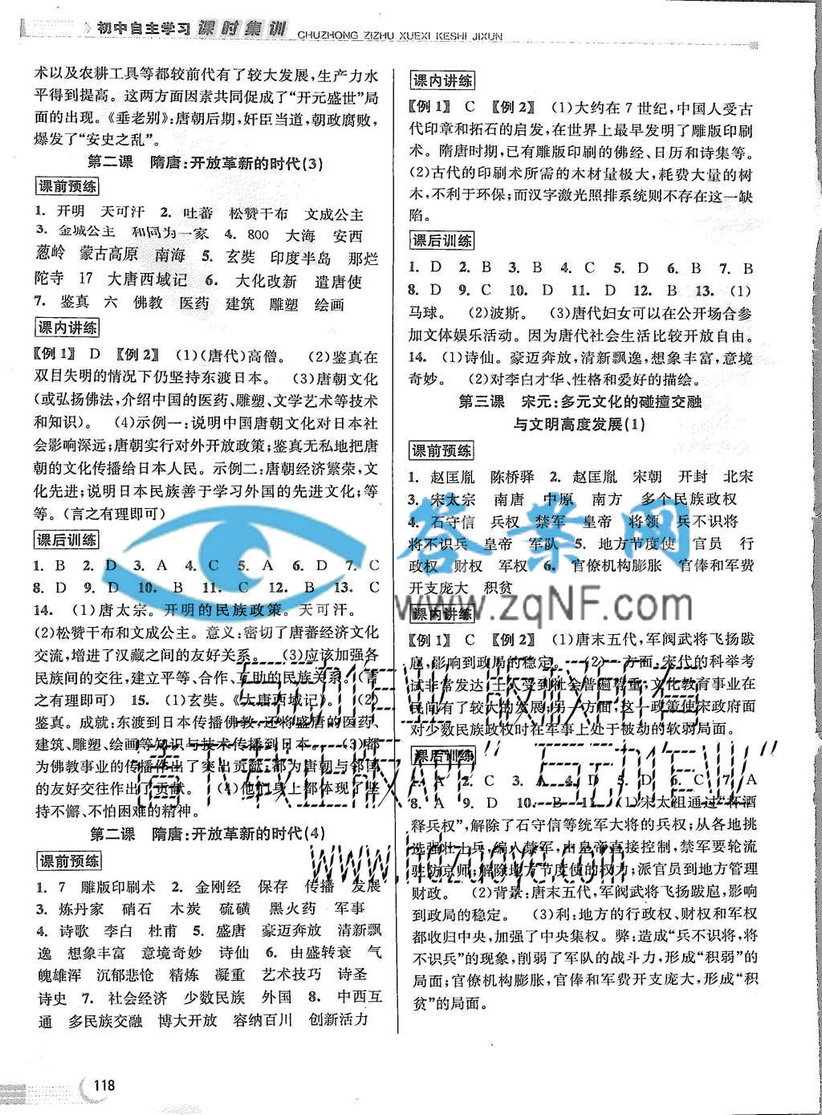 初中自主学习 课时集训 CHUZHONG ZIZHU XUEXI KESHI JIXUN
术以及农耕工具等都较前代有了较大发展,生产力水
平得到提高。这两方面因素共同促成了“开元盛世”局
面的出现。《垂老别》:唐朝后期,奸臣当道,朝政腐败,
爆发了“安史之乱”。
第二课 隋唐:开放革新的时代(3)
课前预练
1. 开明 天可汗 2. 吐蕃 松赞干布 文成公主
3. 金城公主 和同为一家 4. 800 大海 安西
葱岭 蒙古高原 南海 5. 玄奘 印度半岛 那烂
陀寺 17 大唐西域记 6. 大化改新 遣唐使
7. 鉴真 六 佛教 医药 建筑 雕塑 绘画
课内讲练
【例1】 D 【例2】 (1)(唐代)高僧。 (2)鉴真在
双目失明的情况下仍坚持东渡日本。 (3)唐朝文化
(或弘扬佛法,介绍中国的医药、雕塑、文学艺术等技术
和知识)。 (4)示例一:说明中国唐朝文化对日本社
会影响深远;唐朝实行对外开放政策;鉴真无私地把唐
朝的文化传播给日本人民。示例二:唐朝经济繁荣,文
化先进;说明日本民族善于学习外国的先进文化;等
等。(言之有理即可)
课后训练
1. B 2. D 3. A 4. C 5. A 6. D 7. C
8. D 9. D 10. B 11. C 12. B 13. C
14. (1)唐太宗。开明的民族政策。天可汗。
(2)松赞干布和文成公主。意义:密切了唐蕃经济文化
交流,增进了汉藏之间的友好关系。 (3)应该加强各
民族间的交往,建立平等、合作、互助的民族关系。(言
之有理即可) 15. (1)玄奘。《大唐西域记》。 (2)
鉴真。成就:东渡到日本传播佛教,还将盛唐的医药、
建筑、雕塑、绘画等知识与技术传播到日本。 (3)都
为佛教事业的传播作出了突出贡献,都为唐朝与邻国
的友好交往作出了贡献。 (4)他们身上都体现了坚
持不懈、不怕困难的精神。
第二课 隋唐:开放革新的时代(4)
课前预练
1. 7 雕版印刷术 2. 金刚经 保存 传播 发展
3. 炼丹家 硝石 木炭 硫磺 黑火药 军事
4. 诗歌 李白 杜甫 5. 盛唐 豪迈奔放 清新飘
逸 想象丰富 意境奇妙 诗仙 6. 由盛转衰 气
魄雄浑 沉郁悲怆 精炼 凝重 艺术技巧 诗圣
诗史 7. 社会经济 少数民族 外国 8. 中西互
通 多民族交融 博大开放 容纳百川 创新活力
118
课内讲练
【例1】 C 【例2】 (1)大约在7世纪,中国人受古
代印章和拓石的启发,在世界上最早发明了雕版印刷
术。隋唐时期,已有雕版印刷的佛经、日历和诗集等。
(2)古代的印刷术所需的木材量极大,耗费大量的树
木,不利于环保;而汉字激光照排系统则不存在这一缺
陷。
课后训练
1. D 2. B 3. B 4. C 5. D 6. D 7. B
8. D 9. C 10. D 11. D 12. B 13. (1)
马球。 (2)波斯。 (3)唐代妇女可以在公开场合参
加文体娱乐活动。因为唐代社会生活比较开放自由。
14. (1)诗仙。豪迈奔放,清新飘逸,想象丰富,意境
奇妙。 (2)对李白才华、性格和爱好的描绘。
第三课 宋元:多元文化的碰撞交融
与文明高度发展(1)
课前预练
1. 赵匡胤 陈桥驿 2. 赵匡胤 宋朝 开封 北宋
3. 宋太宗 南唐 中原 南方 多个民族政权
4. 石守信 兵权 禁军 皇帝 将领 兵不识将
将不识兵 皇帝 军队 5. 地方节度使 官员 行
政权 财权 军权 6. 官僚机构膨胀 官俸和军费
开支庞大 积贫
课内讲练
【例1】 C 【例2】 (1)唐末五代,军阀武将飞扬跋
扈,影响到政局的稳定。 (2)一方面,宋代的科举考
试非常发达,士人受到社会普遍尊重,文化教育事业在
民间有了较大的发展;另一方面,这一政策使宋政府面
对少数民族政权时在军事上处于被动的软弱局面。
课后训练
A 2. C 3. C 4. D 5. D 6. C 7. A
8. A 9. D 10. B 11. (1)宋太祖通过“杯酒
释兵权”,解除了石守信等统军大将的兵权;从各地挑
选强壮士兵,编入禁军,由皇帝直接控制,禁军要轮流
驻防京师;解除地方节度使的权力;派官员到地方管理
财政。 (2)背景:唐末五代,军阀武将飞扬跋扈,影响
到政局的稳定。 (3)利:地方的行政权、财权和军权
都收归中央,加强了中央集权。弊:造成“兵不识将,将
不识兵”的现象,削弱了军队的战斗力,形成“积弱”的
局面;官僚机构膨胀,官俸和军费开支庞大,形成“积
贫”的局面。
答案网
www.zqNF.com
与动作业 版权所有
请下载正版APP“与动作业”
www.hdzuoye.com